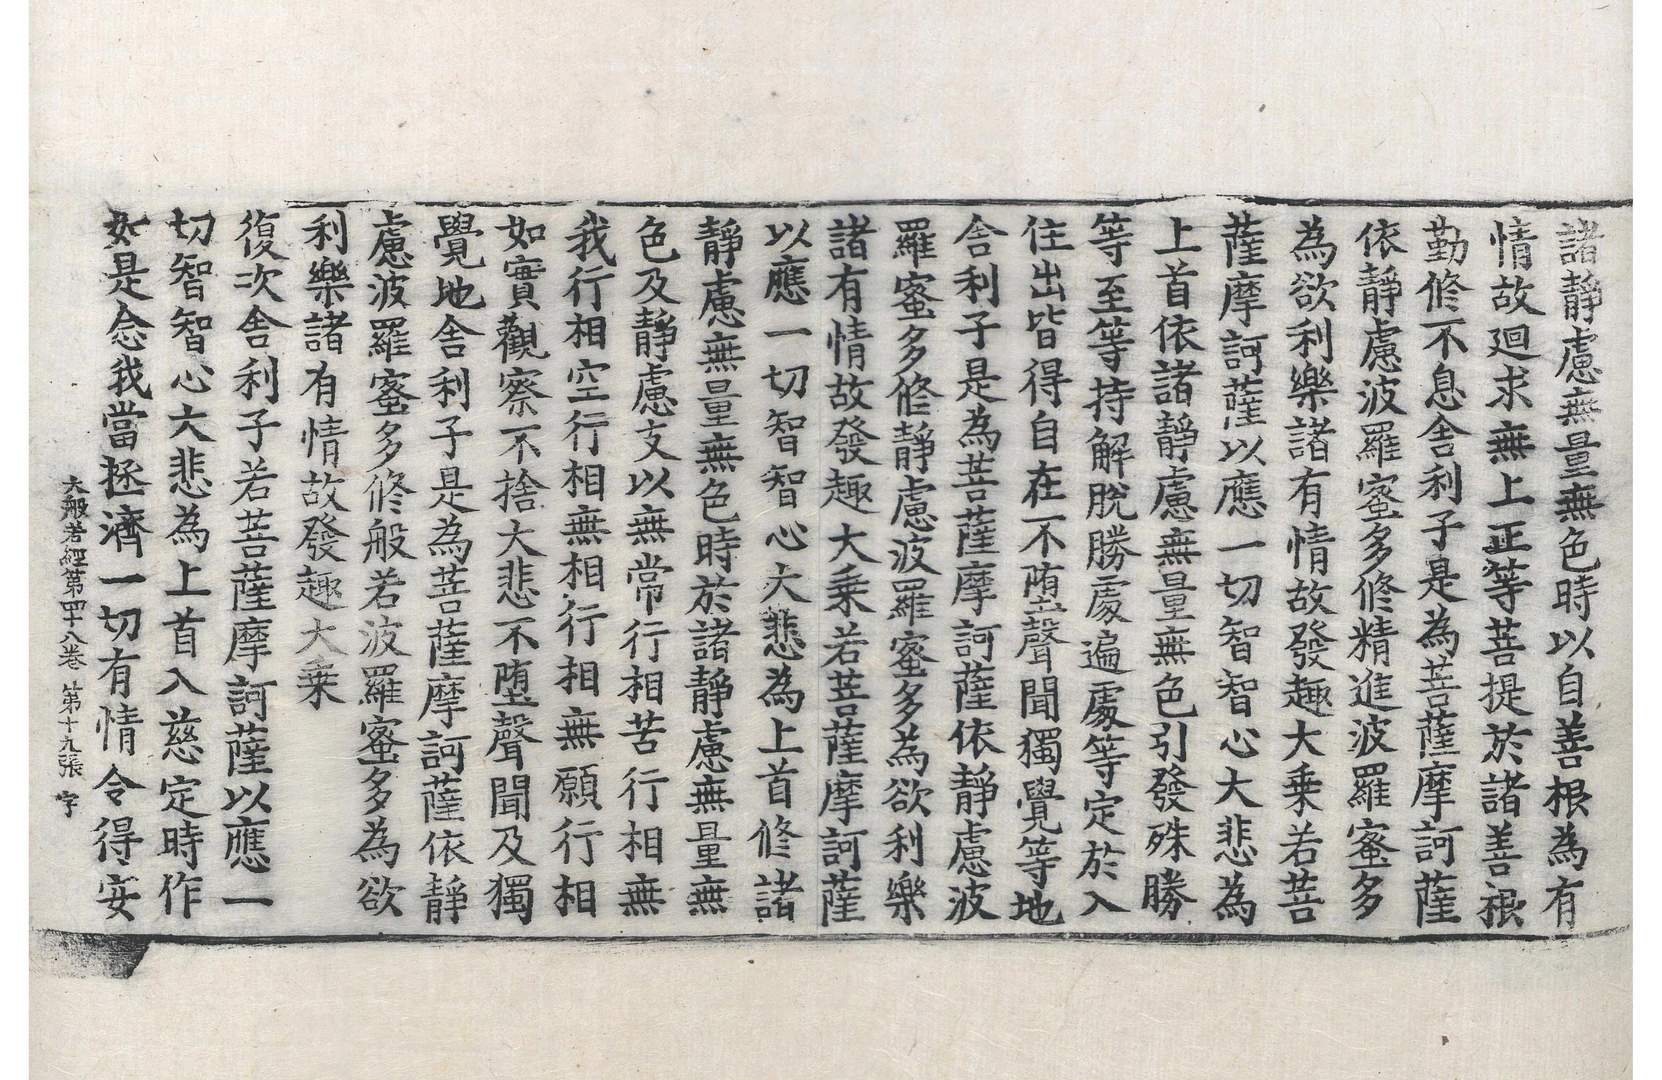 諸靜慮無量無色時以自善根為有
情故迴求無上正等菩提於諸善根
勤修不息舍利子是為菩薩摩訶薩
依靜慮波羅蜜多修精進波羅蜜多
為欲利樂諸有情故發趣大乘若菩
薩摩訶薩以應一切智智心大悲為
上首依諸靜慮無量無色引發殊勝
等至等持解脫勝處遍處等定於入
住出皆得自在不墮聲聞獨覺等地
舍利子是為菩薩摩訶薩依靜慮波
羅蜜多修靜慮波羅蜜多為欲利樂
諸有情故發趣大乘若菩薩摩訶薩
以應一切智智心大悲為上首修諸
靜慮無量無色時於諸靜慮無量無
色及靜慮支以無常行相苦行相無
我行相空行相無相行相無願行相
如實觀察不捨大悲不墮聲聞及獨
覺地舍利子是為菩薩摩訶薩依靜
慮波羅蜜多修般若波羅蜜多為欲
利樂諸有情故發趣大乘
復次舍利子若菩薩摩訶薩以應一
切智智心大悲為上首入慈定時作
如是念我當拯濟一切有情令得安
大般若經第四十八卷 第十九張 字